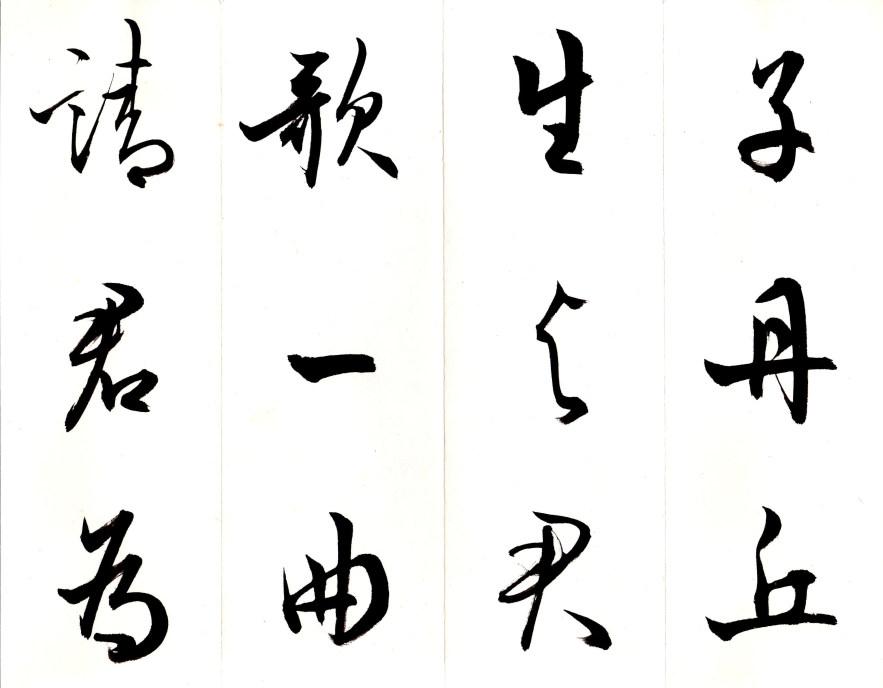 子丹丘
生与君
歌一曲
請君為